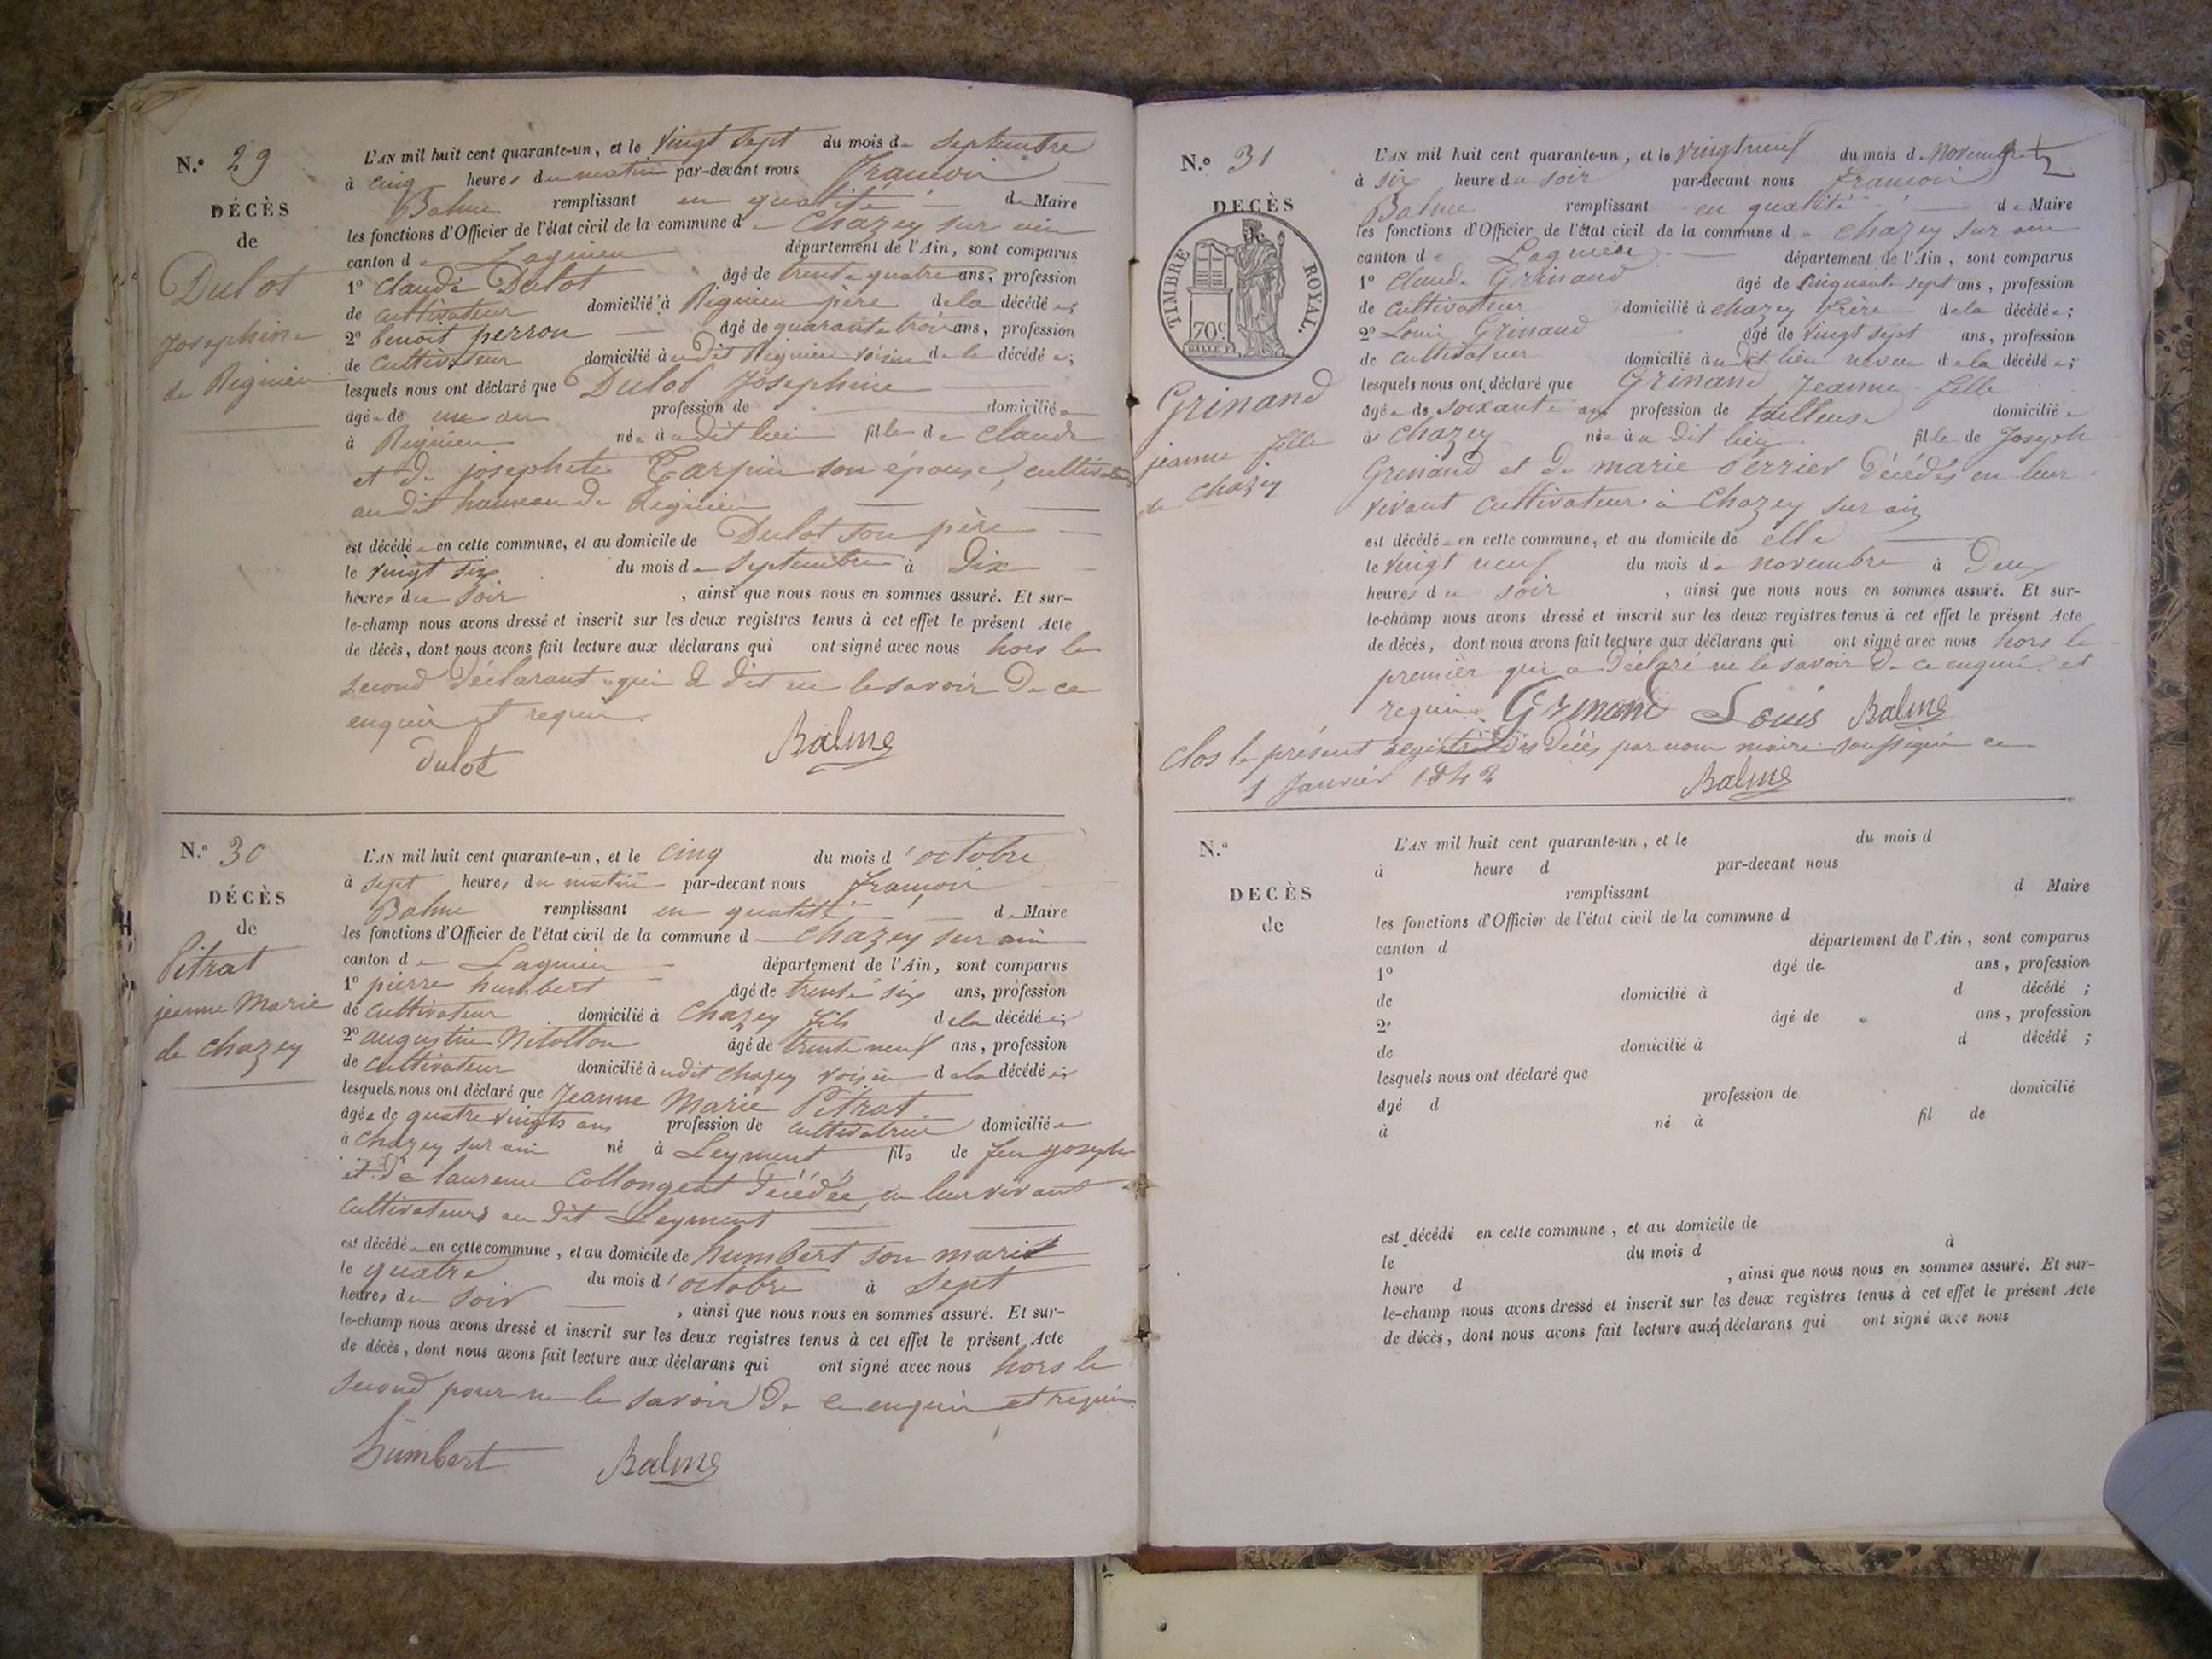 N.º 29
DÉCÈS
de
Dulot
Josephine
de Rignieu
L'AN mil huit cent quarante-un, et le vingt sept du mois de septembre
à cinq heures du matin par-devant nous francois
Balme remplissant en qualité de Maire
les fonctions d'Officier de l'état civil de la commune de chazey sur ain
canton de Lagnieu département de l'Ain, sont comparus
1º Claude Dulot âgé de trente quatre ans, profession
de cultivateur domicilié à Rignieu père de la décédée;
2º benoit perron âgé de quarante trois ans, profession
de cultivateur domicilié à udit Rignieu voisin de la décédée;
lesquels nous ont déclaré que Dulot Josephine
âgée de un an profession de domiciliée
à Rignieu née à udit lieu fille de claude
et de josephete Tarpin son épouse, cultivateurs
au dit hameau de Rignieu
est décédée en cette commune, et au domicile de Dulot son père
le vingt six du mois de septembre à dix
heures du soir, ainsi que nous nous en sommes assuré. Et sur-
le-champ nous avons dressé et inscrit sur les deux registres tenus à cet effet le présent Acte
de décès, dont nous avons fait lecture aux déclarans qui ont signé avec nous hors le
second déclarant qui a dit ne le savoir de ce
enquis et requis.
Dulot Balme
N.º 30
DÉCÈS
de
Pitrat
jeanne Marie
de chazey
L'AN mil huit cent quarante-un, et le cinq du mois d'octobre
à sept heures du matin par-devant nous françois
Balme remplissant en qualité de Maire
les fonctions d'Officier de l'état civil de la commune de chazey sur ain
canton de Lagnieu département de l'Ain, sont comparus
1º pierre humbert âgé de trente six ans, profession
de cultivateur domicilié à Chazey fils de la décédée;
2º augustin âgé de trente neuf ans, profession
de cultivateur domicilié à udit chazey voisin de la décédée;
lesquels nous ont déclaré que Jeanne Marie Pitrat
âgée de quatre vingts ans profession de cultivatrice domiciliée
à Chazey sur ain né à Leyment fils de feu joseph
et de laurence Collongeat décédée, en leur vivant
cultivateurs au dit Leyment
est décédée en cette commune, et au domicile de humbert son marit
le quatre du mois d'octobre à sept
heures du soir, ainsi que nous nous en sommes assuré. Et sur-
le-champ nous avons dressé et inscrit sur les deux registres tenus à cet effet le présent Acte
de décès, dont nous avons fait lecture aux déclarans qui ont signé avec nous hors le
second pour ne le savoir de ce enquis et requis.
humbert Balme
N.º 31
DECÈS
TIMBRE ROYAL.
70c.
Grinand
jeanne fille
de chazey
L'AN mil huit cent quarante-un, et le vingt neuf du mois de Novembre
à six heure du soir par-devant nous francois
Balme remplissant en qualité de Maire
les fonctions d'Officier de l'état civil de la commune de chazey sur ain
canton de Lagnieu département de l'Ain, sont comparus
1º Claude Grinand âgé de cinquante sept ans, profession
de cultivateur domicilié à chazey frère de la décédée;
2º Louis Grinand âgé de vingt sept ans, profession
de cultivateur domicilié à udit lieu neveu de la décédée;
lesquels nous ont déclaré que Grinand Jeanne fille
âgée de soixante ans profession de tailleuse domiciliée
à Chazey née à u dit lieu fille de Joseph
Grinand et de marie Perrier décédés en leur
vivant cultivateur à Chazey sur ain
est décédée en cette commune, et au domicile de elle
le vingt neuf du mois de novembre à Deux
heures du soir, ainsi que nous nous en sommes assuré. Et sur-
le-champ nous avons dressé et inscrit sur les deux registres tenus à cet effet le présent Acte
de décès, dont nous avons fait lecture aux déclarans qui ont signé avec nous hors le
premier qui a déclaré ne le savoir de ce enquis et
requis. Grinand Louis Balme
Clos le présent registre des décès par nous maire soussigné ce
1 Janvier 1842 Balme
N.º
DECÈS
de
L'AN mil huit cent quarante-un, et le du mois d
à heure d par-devant nous
remplissant d Maire
les fonctions d'Officier de l'état civil de la commune d
canton d département de l'Ain, sont comparus
1º âgé de ans, profession
de domicilié à d décédé ;
2º âgé de ans, profession
de domicilié à d décédé ;
lesquels nous ont déclaré que
âgé d profession de domicilié
à né à fil de
est décédé en cette commune, et au domicile de
le du mois d à
heure d , ainsi que nous nous en sommes assuré. Et sur-
le-champ nous avons dressé et inscrit sur les deux registres tenus à cet effet le présent Acte
de décès, dont nous avons fait lecture aux déclarans qui ont signé avec nous